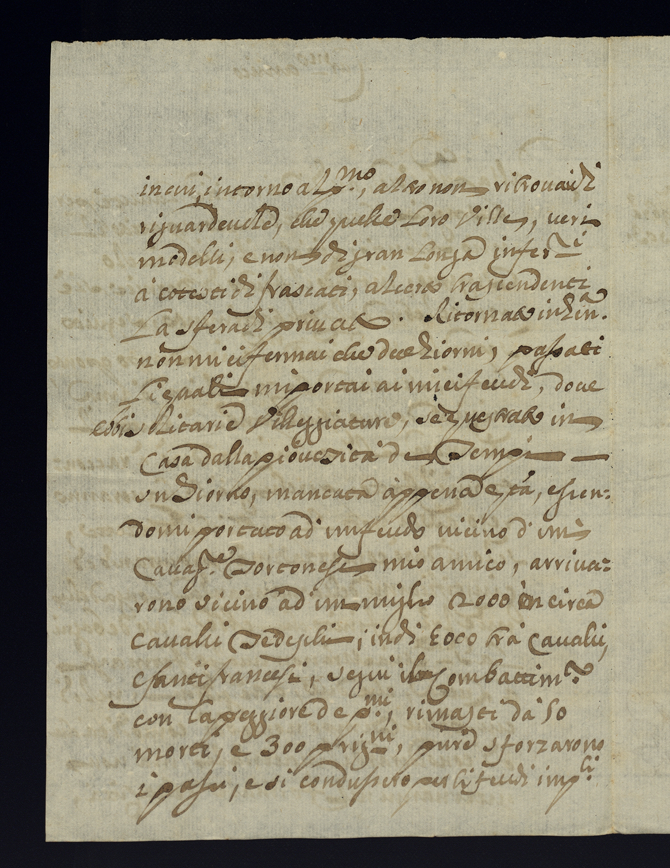 in cui, intorno al p.mo, altro non ritrovai di
riguardevole, che quelle Loro Ville, veri
modelli, e non di gran Longa infer.i
à cotesti di frascati, altero trascendenti
La sfera di privato. Ritornato indi in
non mi ci fermai che dieci Giorni, passati
Li quali mi portai ai miei feudi, dove
ebbi solitarie Villeggiature, sequestrato in
Casa dalla piovosità de Tempi
un Giorno, mancata appena està, essen-
domi portato ad un feudo vicino d'un
Caval.re Tortonese mio amico, arriva-
rono vicino ad un miglio 2000 in circa
Cavalli Tedeschi, indi 5000 trà Cavalli,
e fanti francesi, seguì il Combattim.to
con la peggiore de p.mi, rimasti da 50
morti, e 300 prig.ni, pure sforzarono
i passi, e si condussero per li feudi imp.li